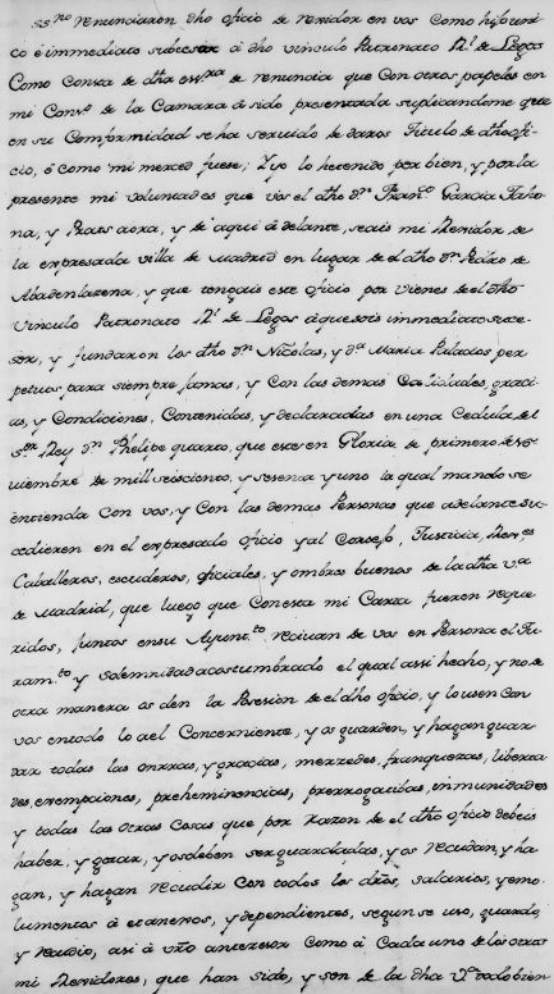 ss.no renunciaron dho oficio de rexidor en vos como hijo uni-
co é immediato subcesor á dho vinculo Patronato R.l de Legos
Como Consta de dha ess.ra de renuncia que Con otros papeles en
mi Cons.o de la Camara á sido presentada suplicandome que
en su Comformidad se ha seruido de daros Titulo de dho ofi-
cio, ó como mi merced fuese; Y yo lo hetenido por bien, y por la
presente mi voluntad es que vos el dho d.n Fran.co Garcia Taho
na, y Prats aora, y de aqui á delante, seais mi Rexidor de
la expresada villa de Madrid en lugar de el dho d.n Pedro de
Abadenlarena, y que tengais este oficio por vienes de el dho
Vinculo Patronato R.l de Legos á que sois immediato suce-
sor, y fundaron los dho d.n Nicolas, y d.a Maria Palacios per
petuos para siempre Jamas, y Con las demas Calidades, graci-
as, y Condiciones, Contenidas, y declaradas en una Cedula de el
s.or Rey d.n Phelipe quarto, que este en Gloria de primero de No-
uiembre de mill seiscientos, y sesenta y uno la qual mando se
entienda Con vos, y Con las demas Personas que adelante su-
cedieren en el expresado oficio y al Consejo, Justicia, Rex.es
Caballeros, escuderos, oficiales, y ombres buenos de la dha v.a
de Madrid, que luego que Con esta mi Carta fueren reque
ridos, Juntos en su Ayunt.to reciuan de vos en Persona el Ju-
ram.to y solemnidad acostumbrado el qual assi hecho, y no de
otra manera os den la Posesion de el dho oficio, y lo usen Con
vos en todo lo a el Concerniente, y os guarden, y hagan guar
dar todas las onrras, y gracias, merzedes, franquezas, liberta
des, exempciones, preheminencias, prerrogatibas, inmunidades
y todas las otras Cosas que por razon de el dho oficio debeis
haber, y gozar, y os deben ser guardadas, y os recudan, y ha
gan, y hagan recudir Con todos los dros, salarios, y emo-
lumentos á el anexos, y dependientes, segun se uso, guardo,
y recudio, asi á vro antezesor Como á Cada uno de los otros
mi Rexidores, que han sido, y son de la dha V.a todo bien